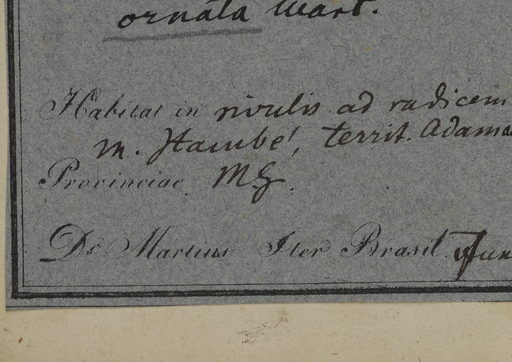 ornata Mart.
Habitat in rivulis ad radicem
m. Itambé, territ. Adama
Provinciae MG.
Dr. Martius Iter Brasil. Jun